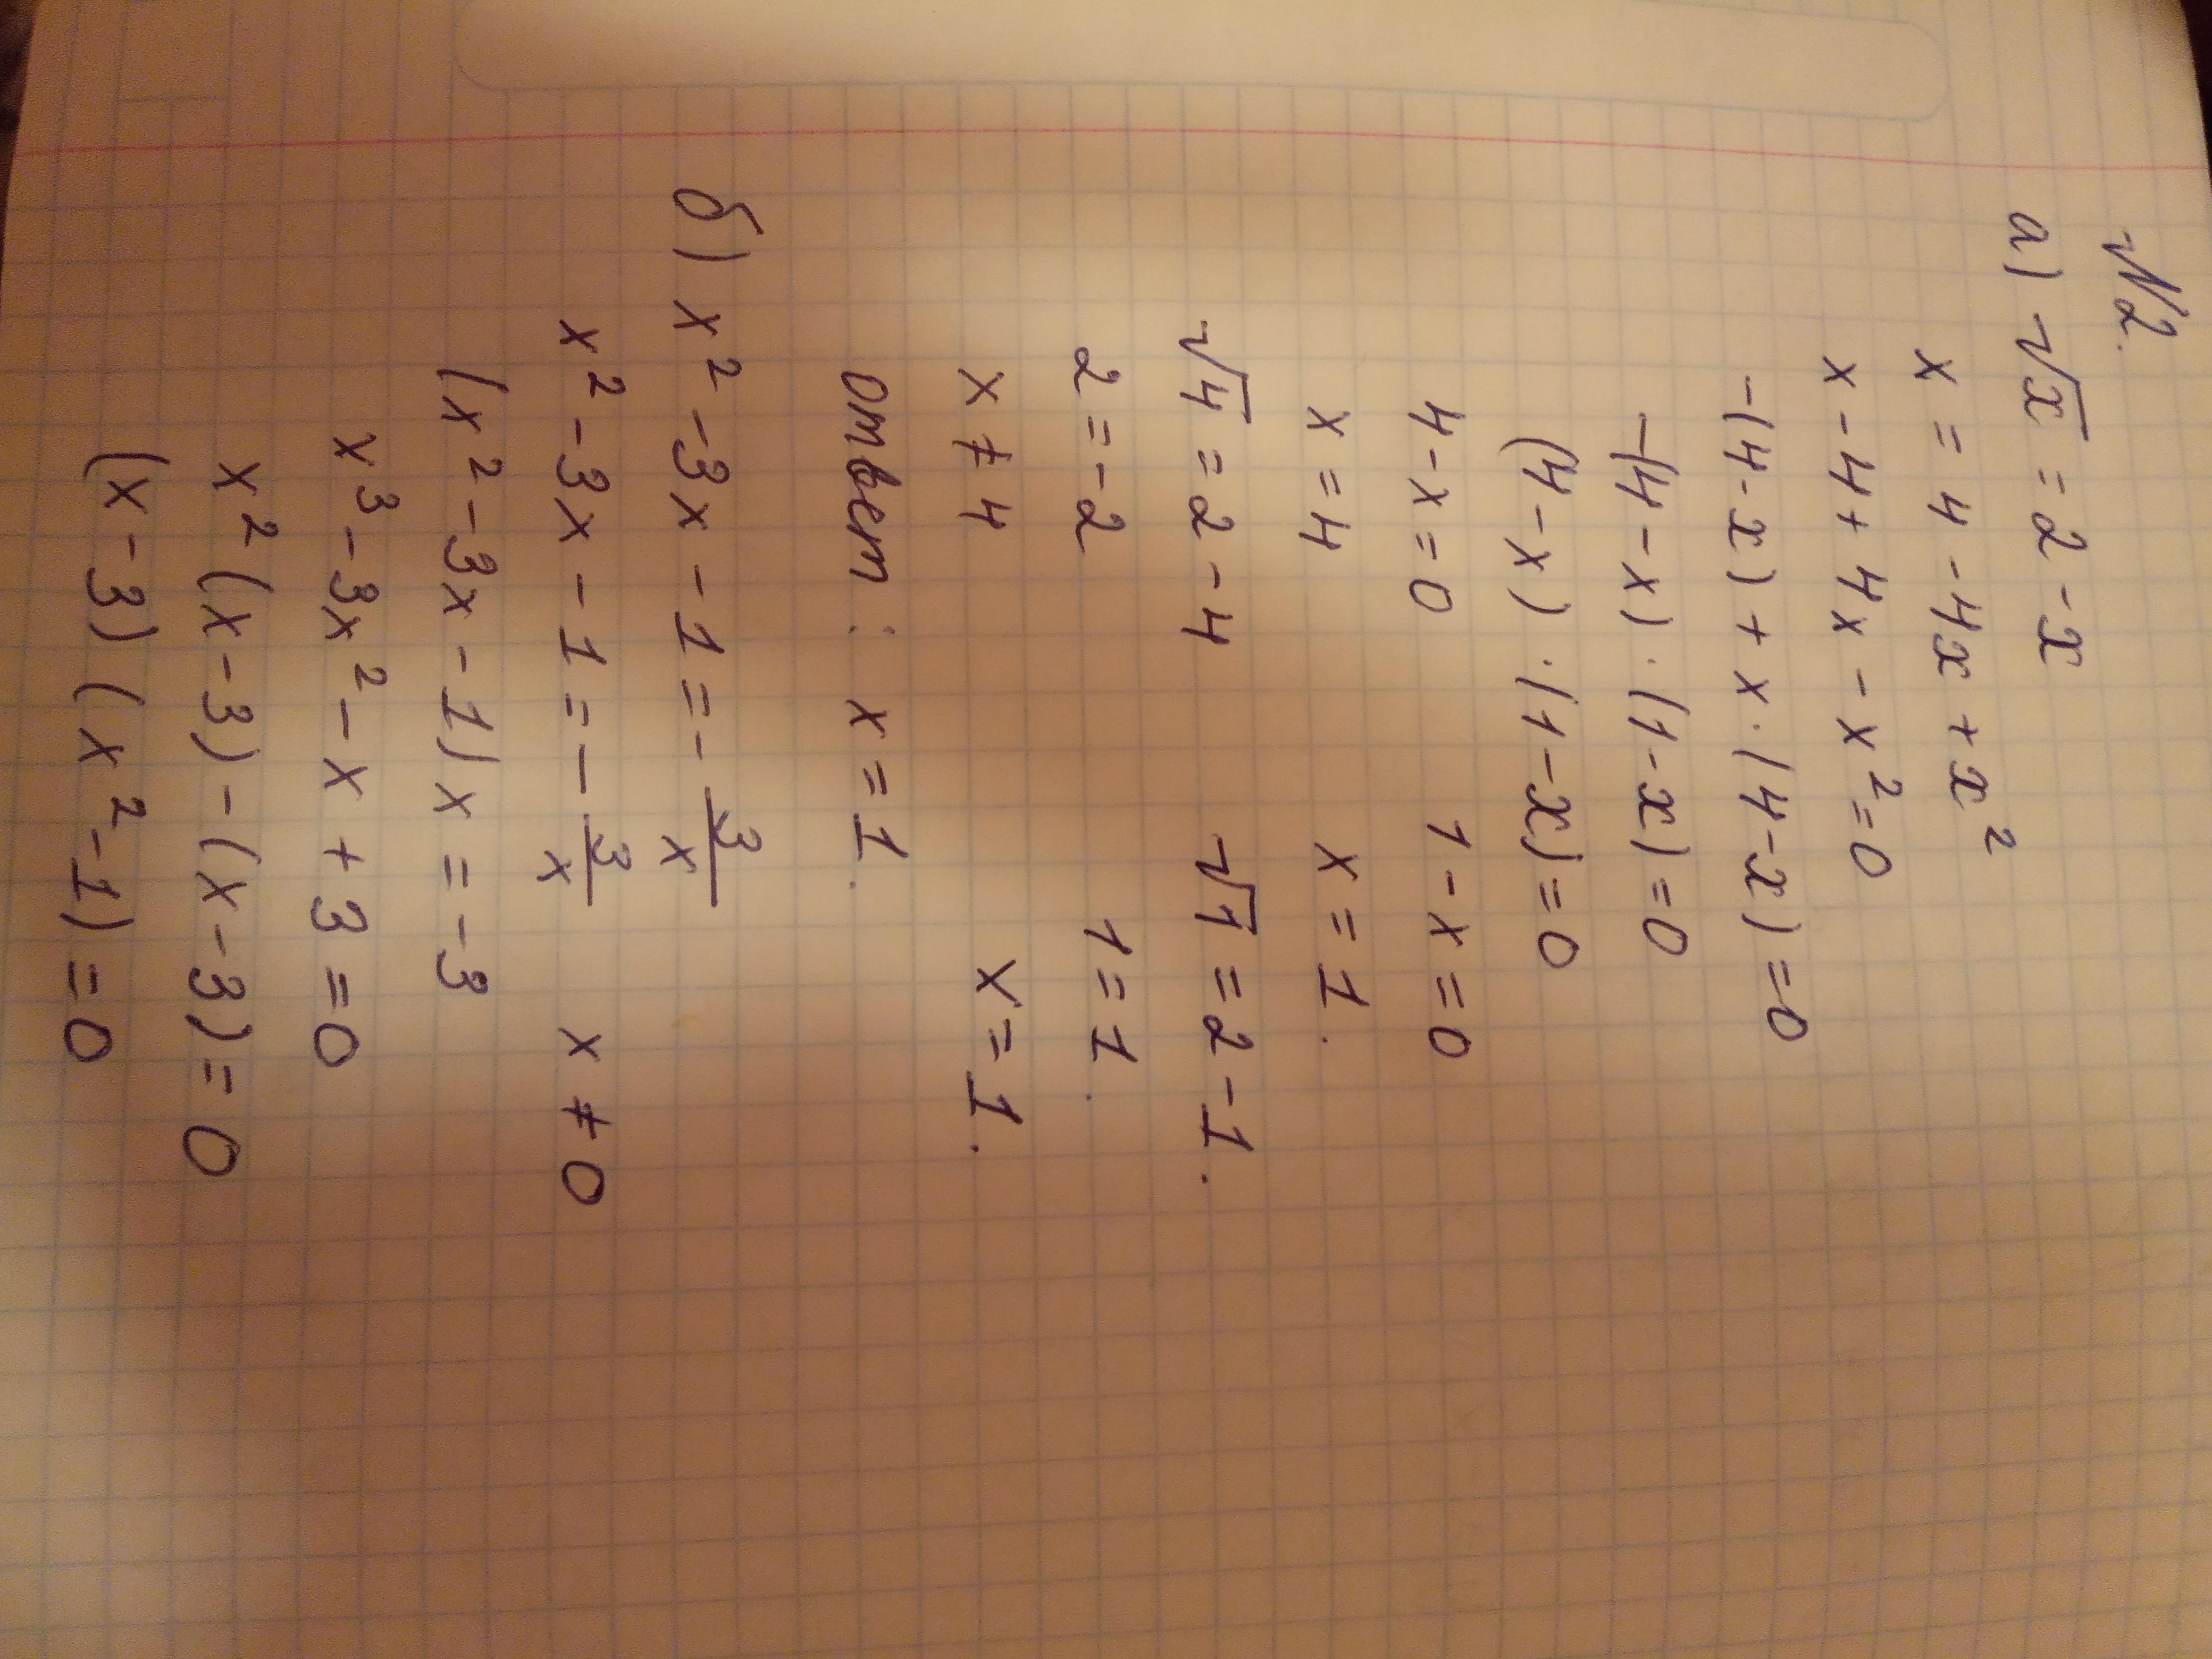 №2.
а) √x = 2 - x
x = 4 - 4x + x²
x - 4 + 4x - x² = 0
-(4 - x) + x · (4 - x) = 0
-(4 - x) · (1 - x) = 0
(4 - x) · (1 - x) = 0
4 - x = 0 1 - x = 0
x = 4 x = 1.
√4 = 2 - 4 √1 = 2 - 1.
2 = -2 1 = 1.
x ≠ 4 x = 1.
ответ: x = 1.
б) x² - 3x - 1 = - 3/x
x² - 3x - 1 = - 3/x x ≠ 0
(x² - 3x - 1) x = -3
x³ - 3x² - x + 3 = 0
x² (x - 3) - (x - 3) = 0
(x - 3) (x² - 1) = 0